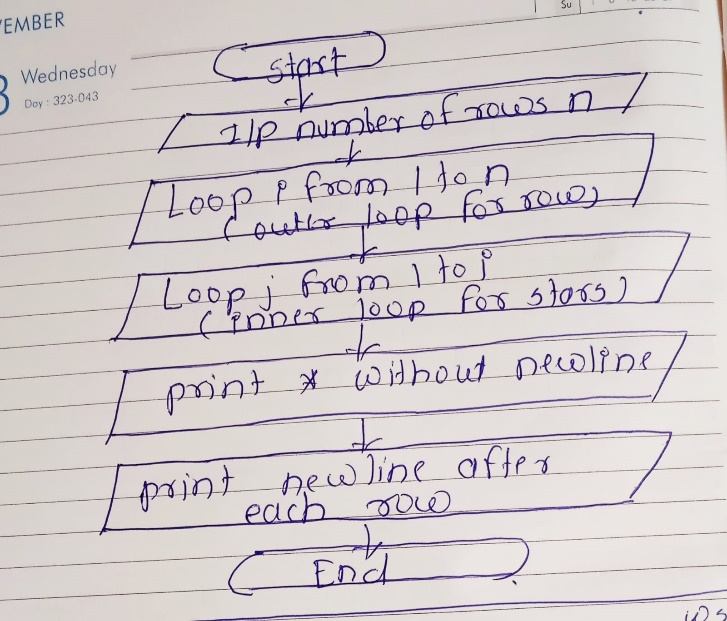 EMBER
Su
Wednesday
Day : 323-043
Start
I/p number of rows n
Loop i from 1 to n
(outer loop for row)
Loop j from 1 to i
(inner loop for stars)
print * without newline
print newline after
each row
End